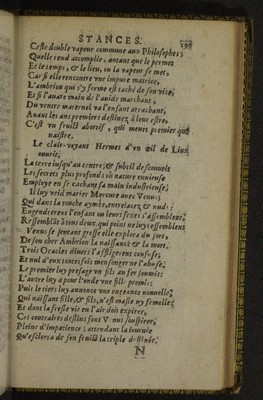 STANCES.
Ceste double vapeur commune aux Philosophes:
Quelle rend accomplie, autant que le permet
Et le temps, & le lieu, ou la vapeur se met,
Car si elle rencontre vne impure matrice,
L'ambrion qui s'y forme est taché de son vice,
Et si l'auare main de l'auide marchant,
Du ventre maternel va l'enfant arrachant,
Auant les ans premiers destinez à leur estre,
C'est vn fruict abortif, qui meurt premier que
naistre,
Le clair-voyant Hermes d'vn œil de Linx
ouurit,
La terre iusqu'au centre, & subtil descouurit
Les secrets plus profonds où nature ennieuse
Employe en se cachant sa main industrieuse,
Il luy veid marier Mercure auec Venus,
Qui dans la couche ayme, entrelacez & nuds:
Engendrerent l'enfant ou leurs sexes s'assemblent,
Ressemblāt à tous deux, qui point ne luy ressemblent
Venus se sentant grosse elle explora du sort,
De son cher Ambrion la naissance & la mort,
Trois Oracles diuers l'affligerent confuse,
Et nul d'eux toutes fois mensonger ne l'abuse,
Le premier luy presage vn fils au fer soumis:
L'autre luy a pour l'onde vne fille promis:
Puis le tiers luy annonce vne engeance nouuelle,
Qui naissant fille, & fils, n'est masle ny femelle:
Et dont la fresle vie en l'air doit expirer,
Ces contraires destins font Venus souspirer,
Pleine d'impatience: attendant la iournee
Qu'esclora de son fruict la triple destinée.
N